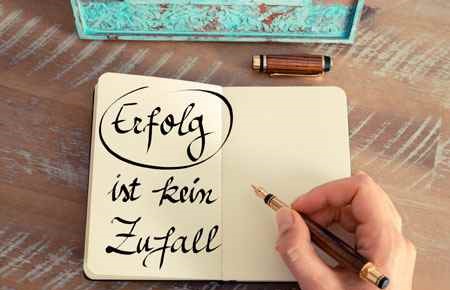 Erfolg
ist kein
Zufall